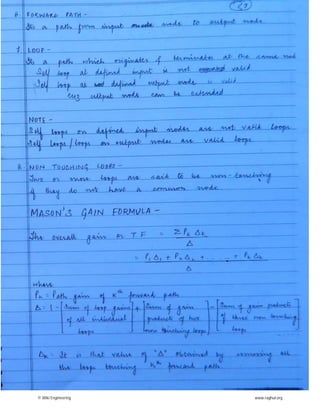 67
6. FORWARD PATH -
It's a path from input node to output node.
7. LOOP -
It's a path which originates & terminates at the same node
Self loop at defined input is not valid
Self loop at defined output node is valid
output node can be extended
NOTE -
Self loops on defined input nodes are not valid loops
Self loops / loops on output nodes are valid loops.
8. NON TOUCHING LOOPS -
Two or more loops are said to be non-touching
if they do not have a common node.
MASON'S GAIN FORMULA -
The overall gain or T.F = Σ Pk Δk
Δ
= P1 Δ1 + P2 Δ2 + ..... + Pk Δk
Δ
where
Pk = Path gain of Kth forward path
Δ = 1 - [Sum of loop gains of all individual loops] + [Sum of gain products of two non touching loops] - [Sum of gain products of three non touching loops]
Δk - It is that value of "Δ" obtained by removing all
the loops touching kth forward path.
© Wiki Engineering www.raghul.org